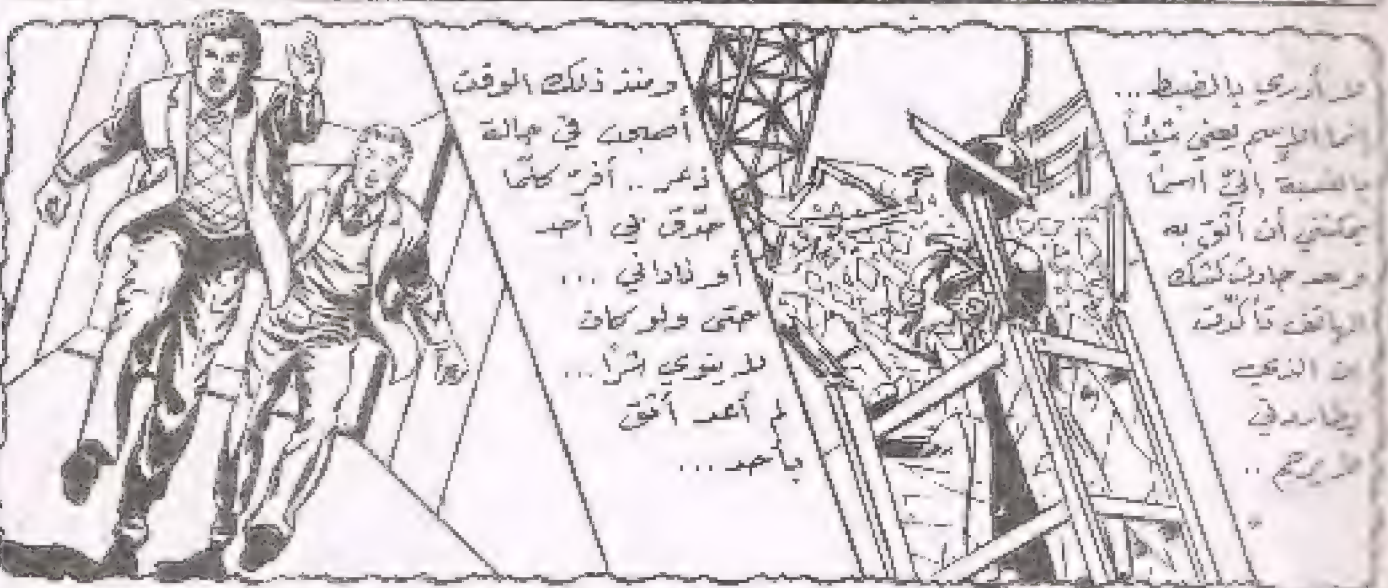 لا أدري بالضبط...
انما الاسم يعني شيئاً
بالنسبة إليّ اسماً
يمكنني أن أثق به
وبعد حادث كشك
الهاتف تأكدت
ان الذي
يطاردني
..
ومنذ ذلك الوقت
أصبحت في حالة
ذعر .. أفرّ كلّما
حدّق بي أحد
أو ناداني ...
حتى ولو كان
لا ينوي شرّا ...
لم أعد أثق
بأحد ...